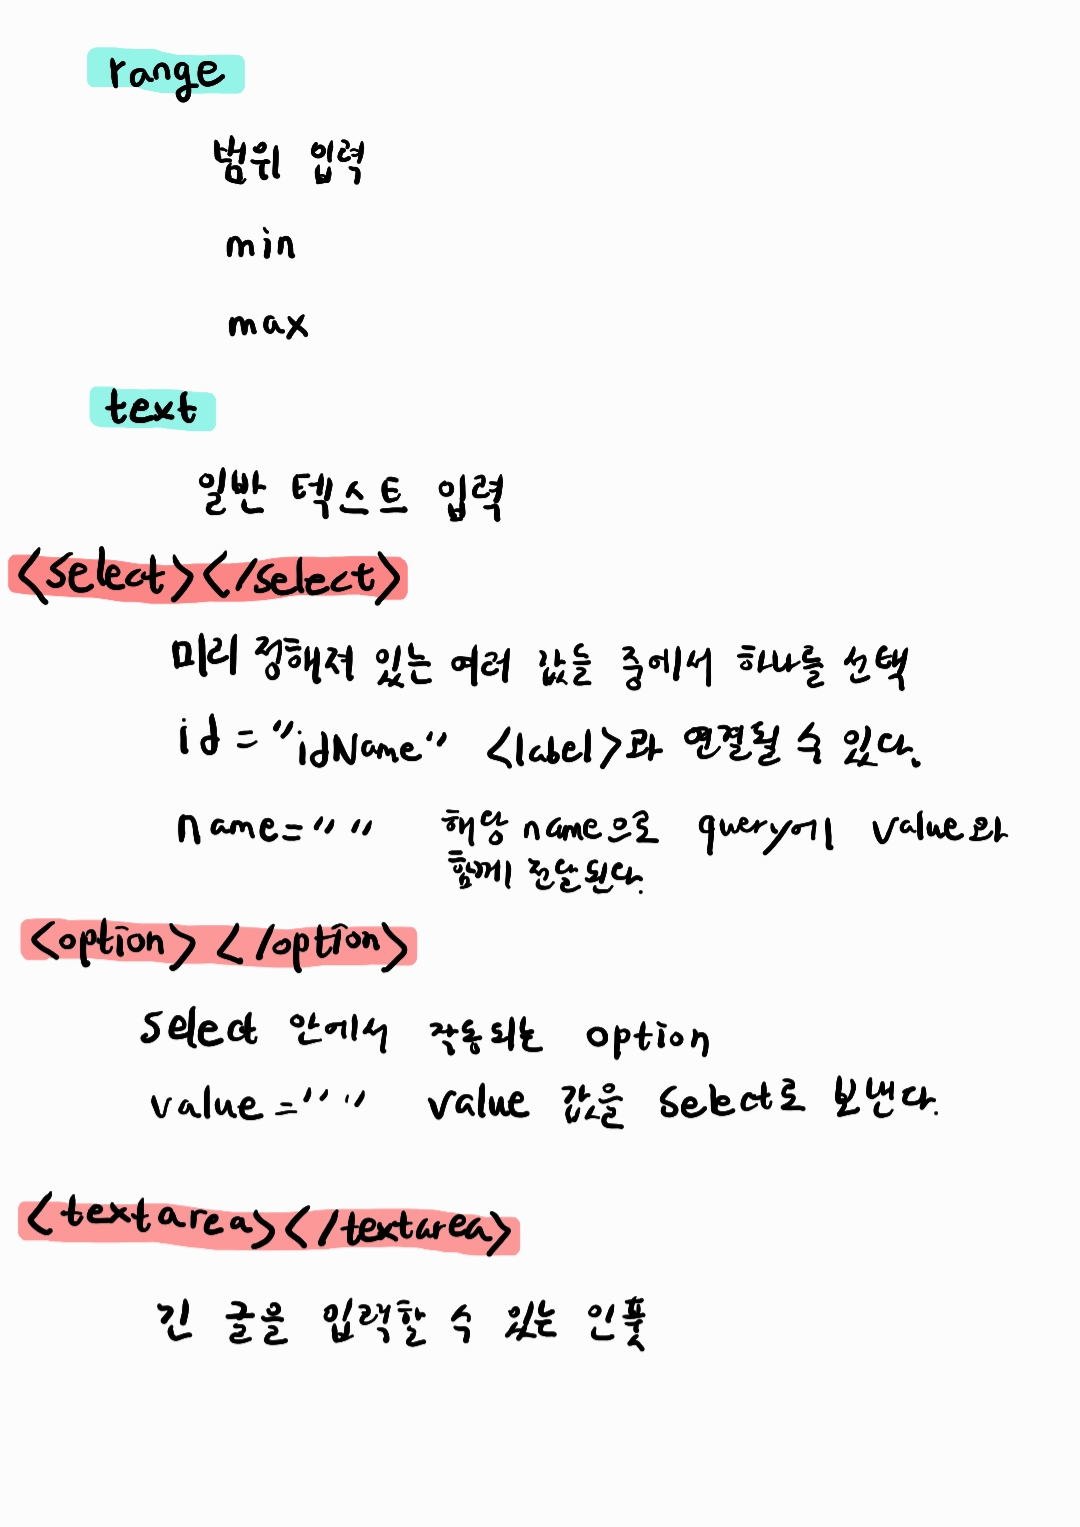 range
범위 입력
min
max
text
일반 텍스트 입력
<select></select>
미리 정해져 있는 여러 값들 중에서 하나를 선택
id = "idName" <label>과 연결될 수 있다.
name=" " 해당 name으로 query에 value와
함께 전달된다.
<option></option>
select 안에서 작동되는 option
value=" " value 값을 select로 보낸다.
<textarea></textarea>
긴 글을 입력할 수 있는 인풋